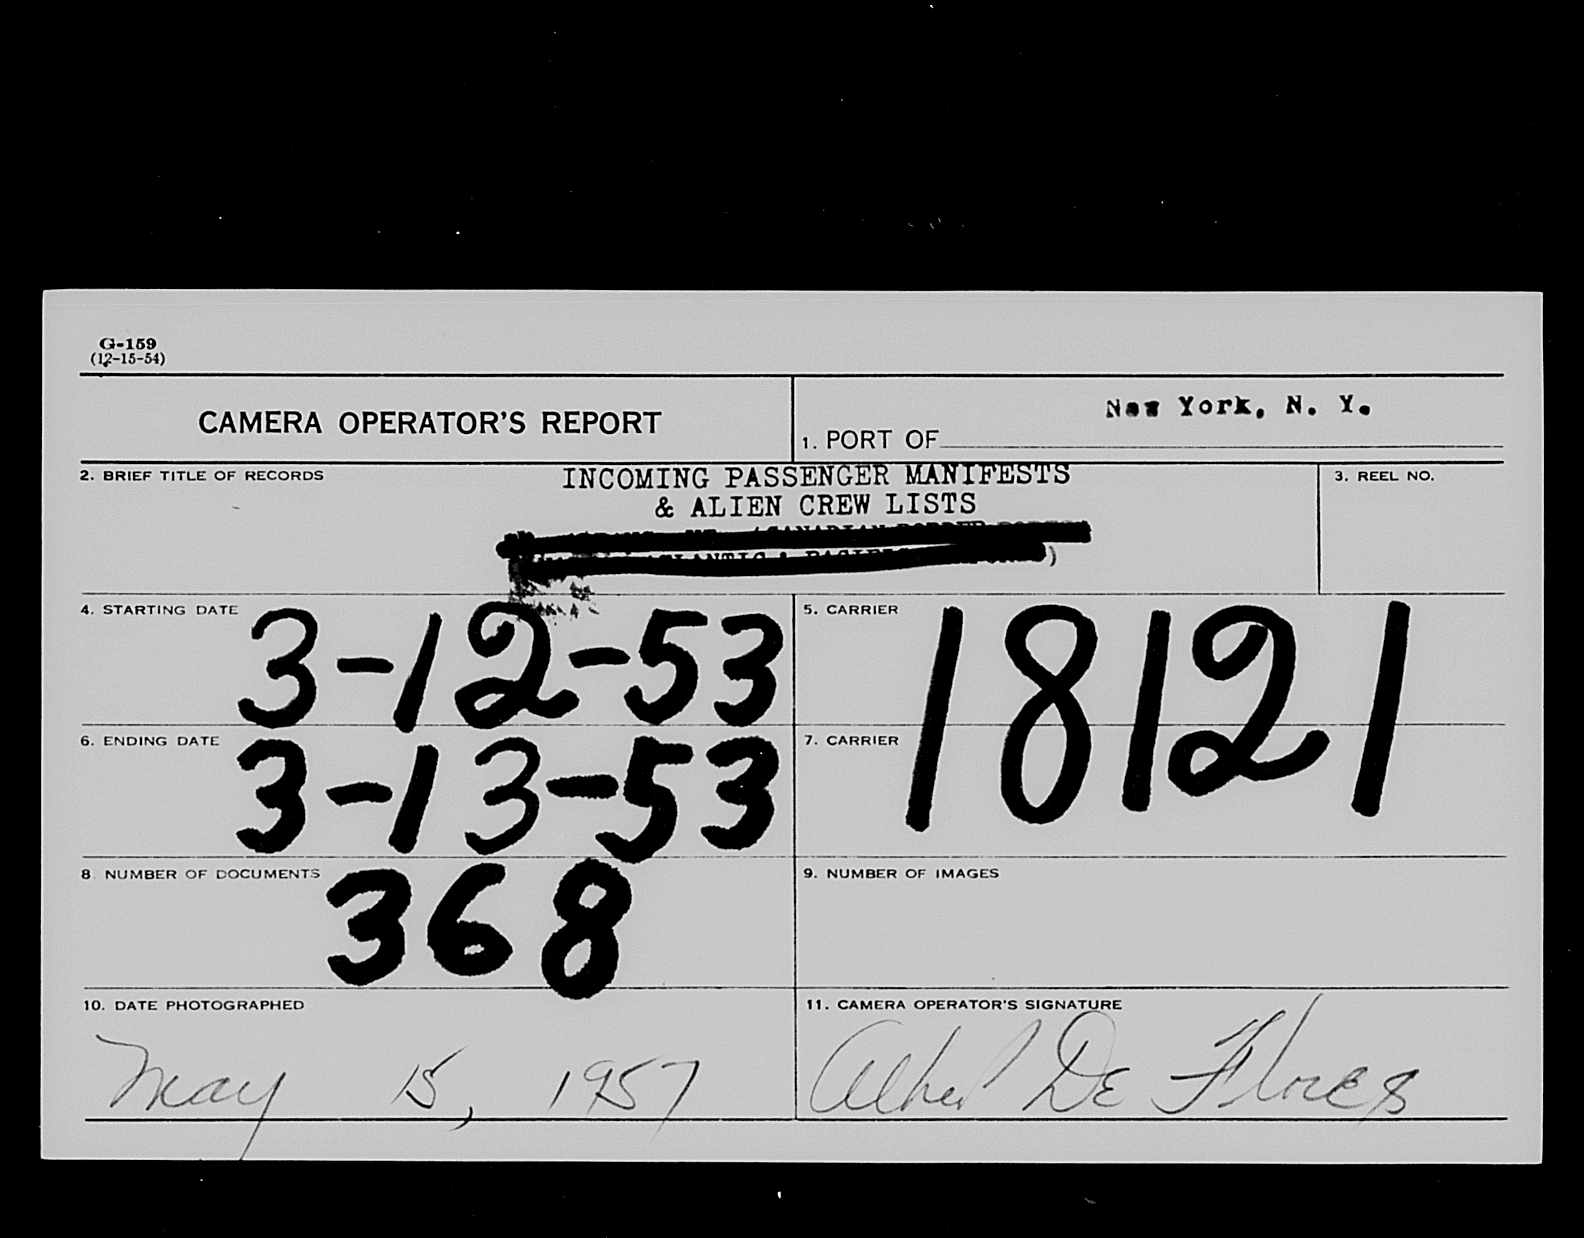 G-159
(12-15-54)
CAMERA OPERATOR'S REPORT
1. PORT OF New York, N. Y.
2. BRIEF TITLE OF RECORDS
INCOMING PASSENGER MANIFESTS
& ALIEN CREW LISTS
3. REEL NO.
4. STARTING DATE 3-12-53
5. CARRIER
18121
6. ENDING DATE 3-13-53
7. CARRIER
8. NUMBER OF DOCUMENTS 368
9. NUMBER OF IMAGES
10. DATE PHOTOGRAPHED
May 15, 1957
11. CAMERA OPERATOR'S SIGNATURE
De Flores